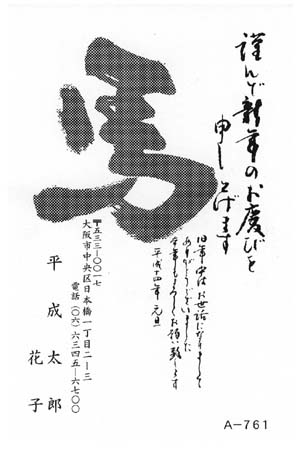 謹んで新年のお慶びを
申し上げます
旧年中はお世話になりまして
ありがとうございました
今年もよろしくお願い致します
平成十四年 元旦
馬
〒五三三―〇〇一七
大阪市中央区日本橋一丁目二―三
電話(〇六)六三四五―六七〇〇
平成太郎
花子
A-761